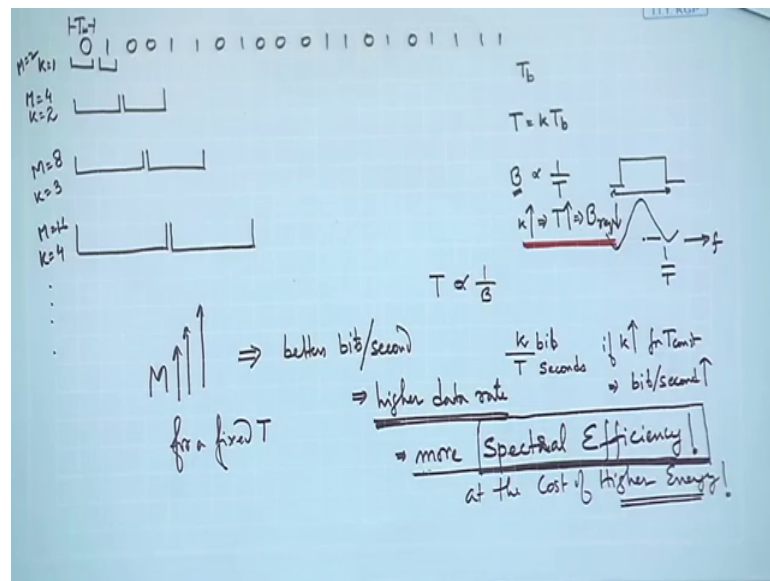 |-Tb-|
0 1 0 0 1 1 0 1 0 0 0 1 1 0 1 0 1 1 1 1
M=2 K=1
M=4
K=2
M=8
K=3
M=16
K=4
Tb
T=kTb
B ∝ 1/T
k↑ ⇒ T↑ ⇒ Breq↓
→f
1/T
T ∝ 1/B
M↑↑↑ ⇒ better bit/second
for a fixed T
k bits / T seconds if k↑ for T const
⇒ bit/second↑
⇒ higher data rate
⇒ more Spectral Efficiency!
at the cost of Higher Energy!